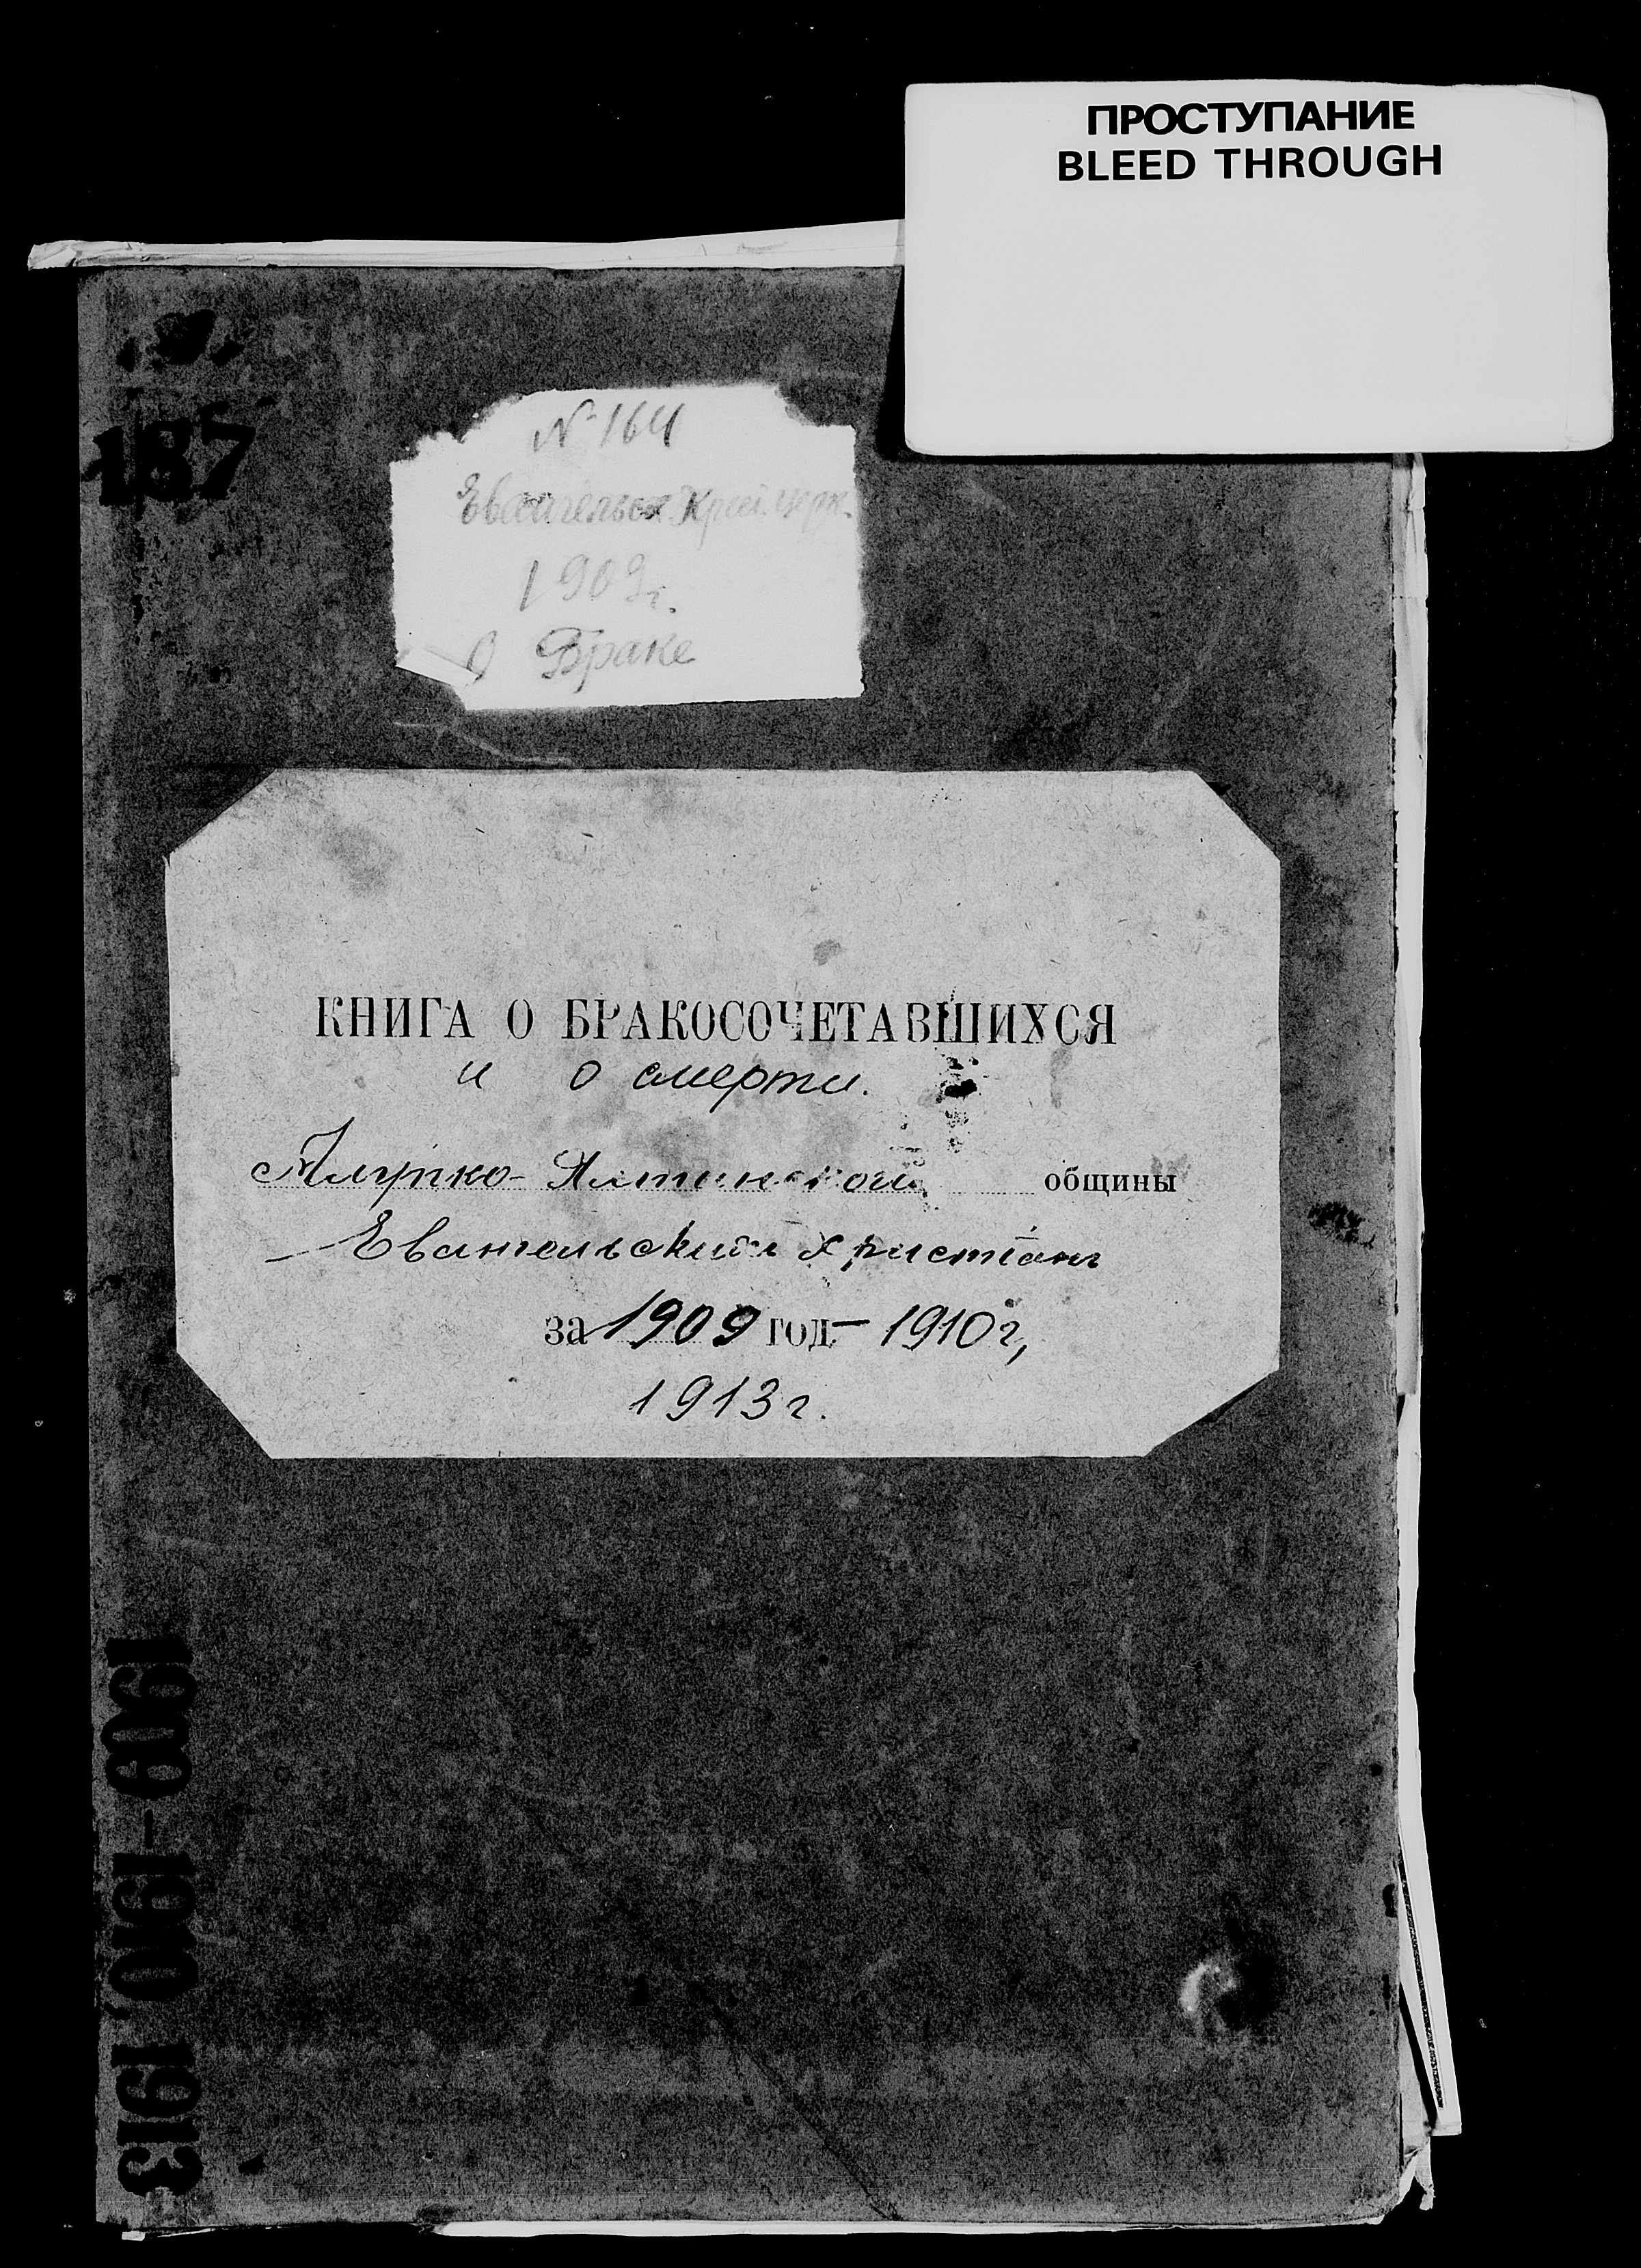 ПРОСТУПАНИЕ
BLEED THROUGH
187
№ 164
1909г.
О Браке
КНИГА О БРАКОСОЧЕТАВШИХСЯ
и о смерти.
Алупко-Ялтинской общины
Евангельскихъ христіанъ
за 1909 год - 1910 г,
1913 г.
1909-1910, 1913